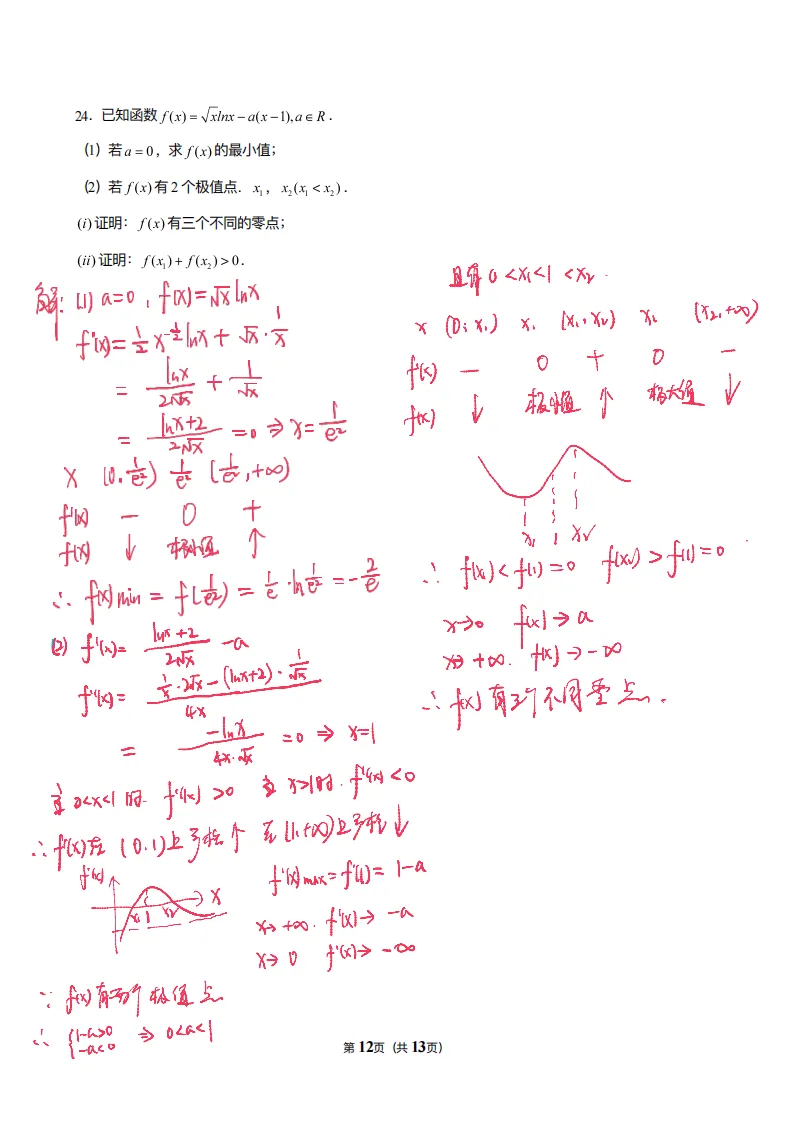 24. 已知函数 f(x) = √x lnx − a(x − 1), a ∈ R .
(1) 若 a = 0, 求 f(x) 的最小值;
(2) 若 f(x) 有 2 个极值点. x₁, x₂(x₁ < x₂) .
(i) 证明: f(x) 有三个不同的零点;
(ii) 证明: f(x₁) + f(x₂) > 0.
解: (1) a=0, f(x)=√x lnx
f'(x)= 1/2 x^(-1/2) lnx + √x · 1/x
= lnx/(2√x) + 1/√x
= (lnx+2)/(2√x) =0 ⇒ x= 1/e²
x (0. 1/e²) 1/e² (1/e², +∞)
f'(x) − 0 +
f(x) ↓ 极小值 ↑
∴ f(x)min = f(1/e²) = 1/e · ln 1/e² = − 2/e
(2) f'(x)= (lnx+2)/(2√x) −a
f''(x)= (1/x · 2√x − (lnx+2) · 1/√x)/(4x)
= −lnx/(4x·√x) =0 ⇒ x=1
当 0<x<1 时. f''(x) >0 当 x>1时. f''(x) <0
∴ f'(x)在 (0.1)上 ↑ 在(1,+∞)上 ↓
f'(x)
x
x₁ 1 x₂
f'(x)max = f'(1) = 1−a
x→ +∞. f'(x)→ −a
x→ 0 f'(x)→ −∞
∵ f(x) 有两个极值点
∴ {1−a>0 −a<0 ⇒ 0<a<1
且有 0 <x₁<1 <x₂ .
x (0, x₁) x₁ (x₁, x₂) x₂ (x₂, +∞)
f'(x) − 0 + 0 −
f(x) ↓ 极小值 ↑ 极大值 ↓
x₁ 1 x₂
∴ f(x₁) < f(1) =0 f(x₂) > f(1) =0
x→0 f(x) → a
x→ +∞. f(x) → −∞
∴ f(x) 有三个不同零点 .
第 12页 (共 13页)